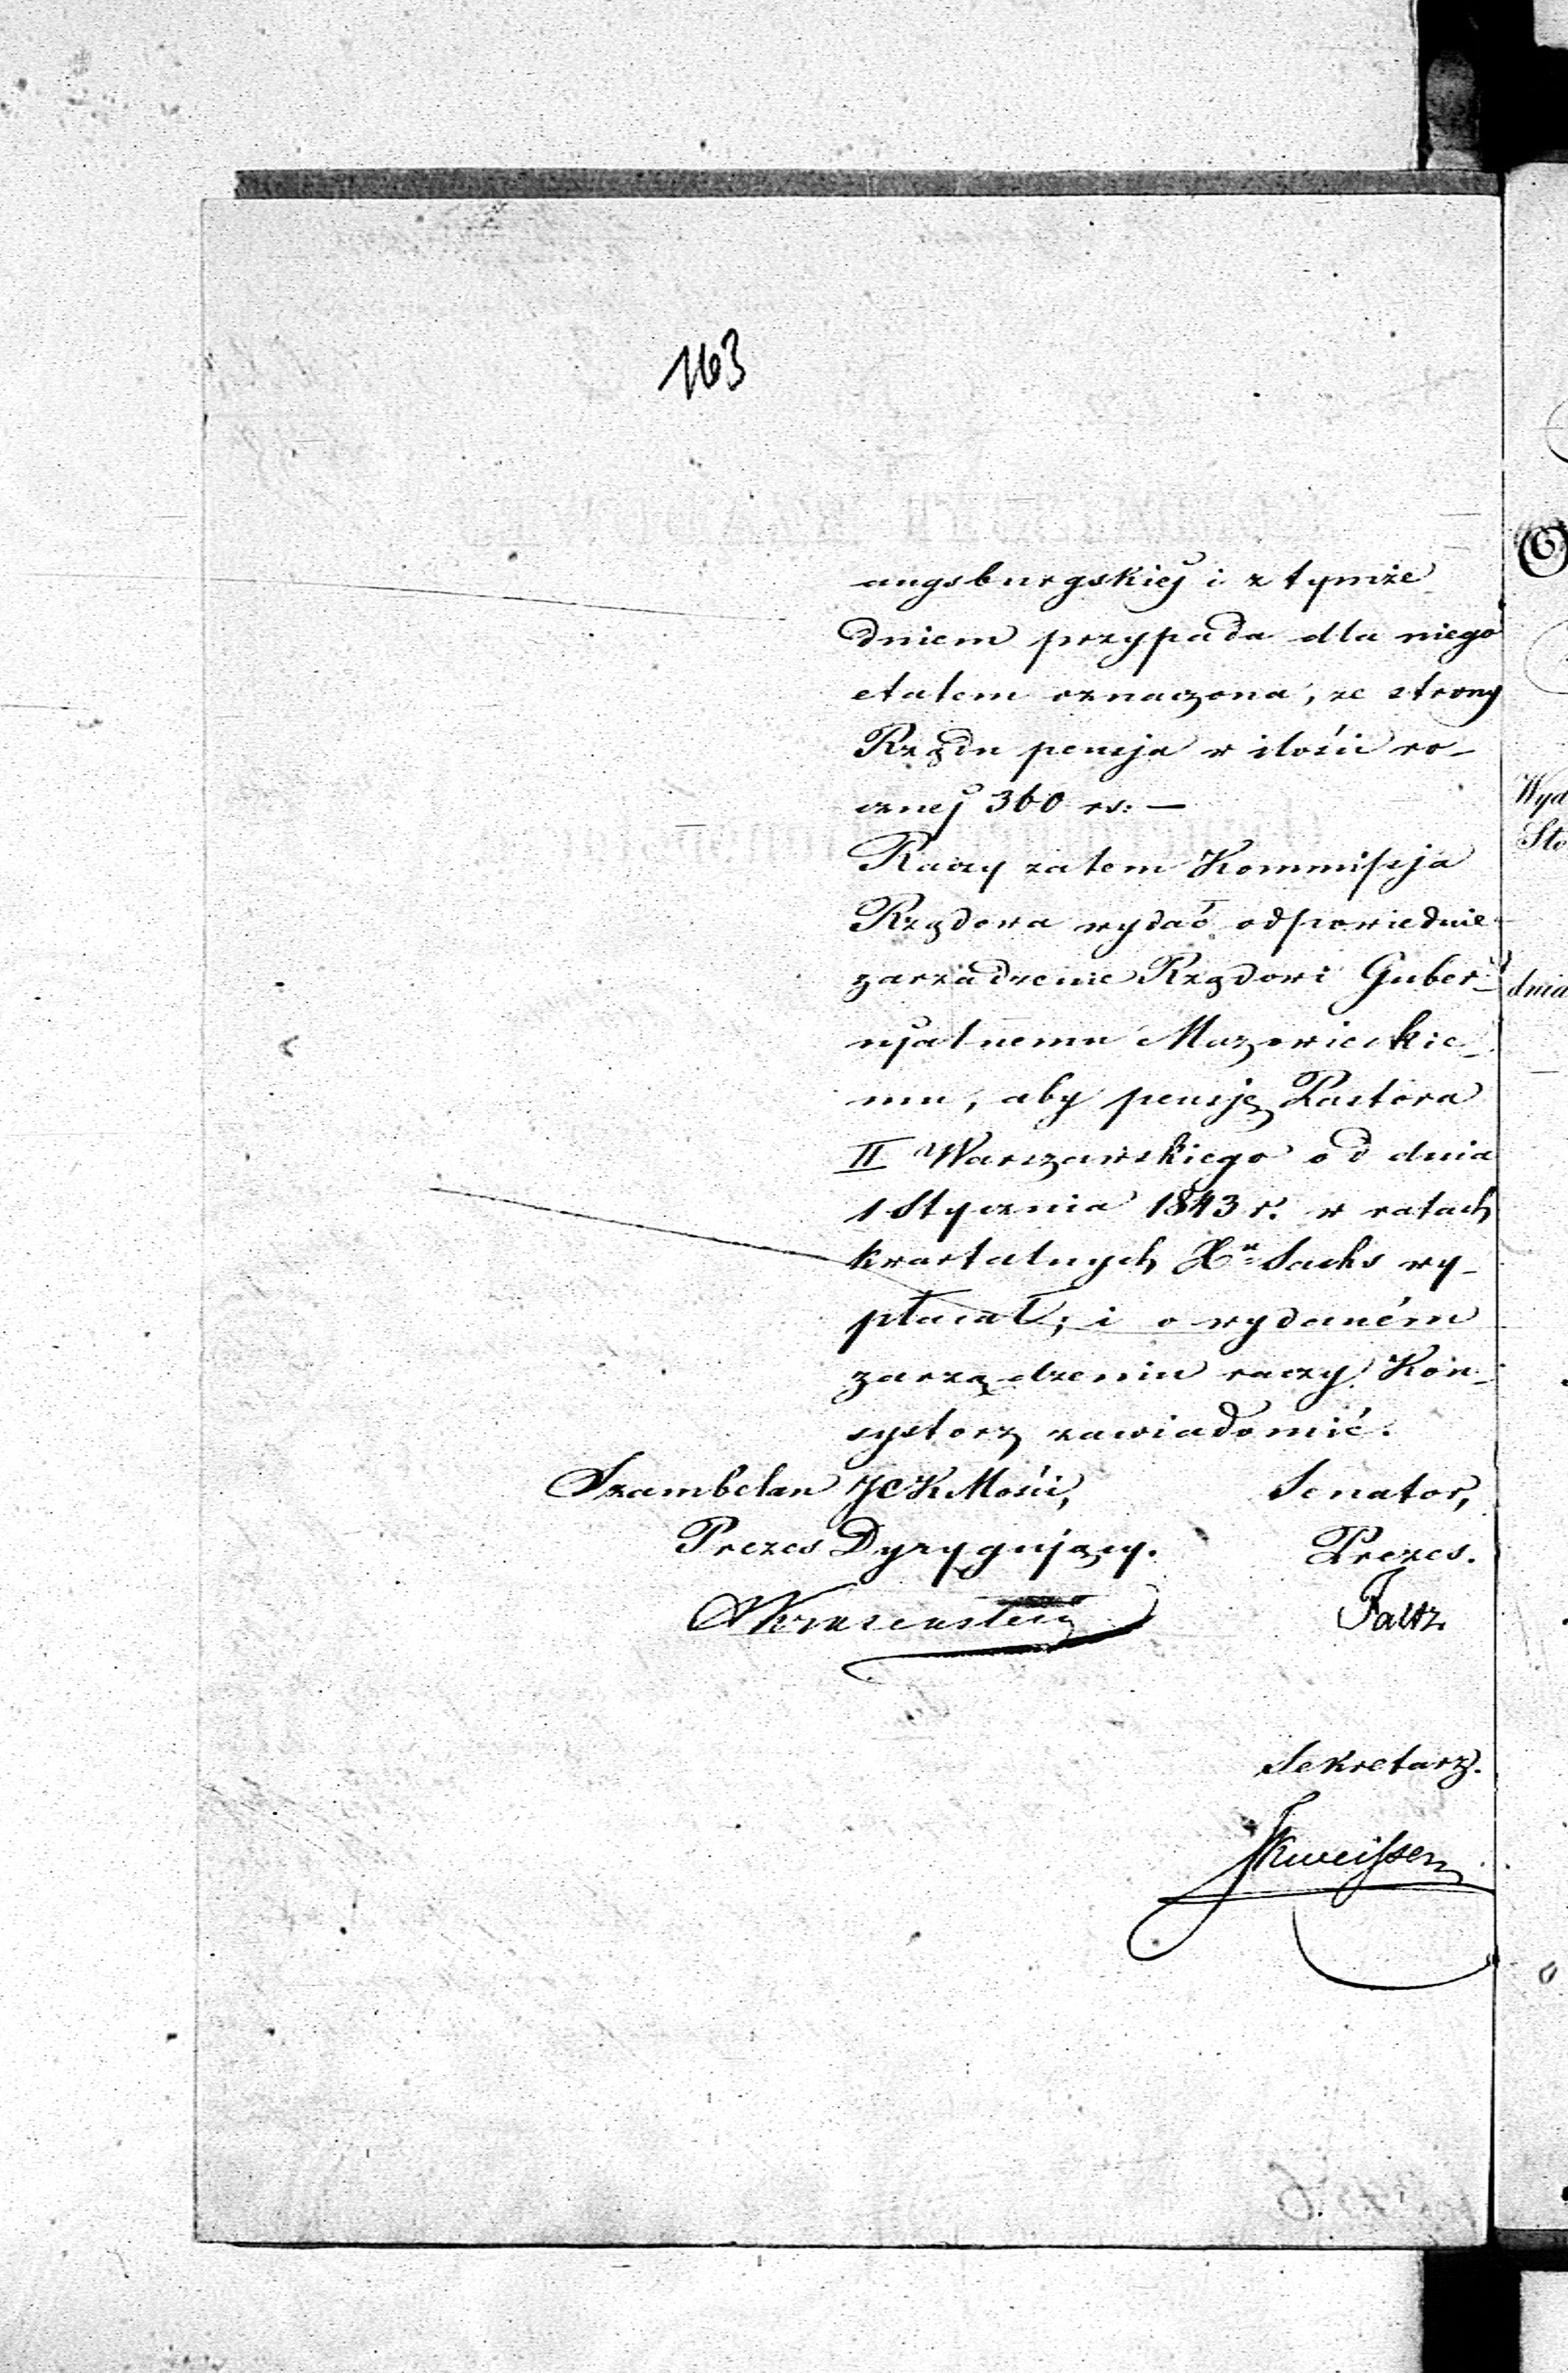 163
augsburgskiej i z tymże
dniem przypada dla niego
etatem oznaczona, ze strony
Rządu pensja w ilości ro-
cznej 360 rs: —
Raczy zatem Kommissja
Rządowa wydać odpowiednie
zarządzenie Rządowi Guber-
njalnemu Mazowieckie-
mu, aby pensję Pastora
II Warszawskiego od dnia
1 Stycznia 1843 r. w ratach
kwartalnych Xu Sachs wy-
płacał; i o wydaném
zarządzeniu raczy Kon-
systorz zawiadomić.
Szambelan JCK Mości, Senator,
Prezes Dyrygujący. Prezes.
Sekretarz.
Wyd
Sto
dnia